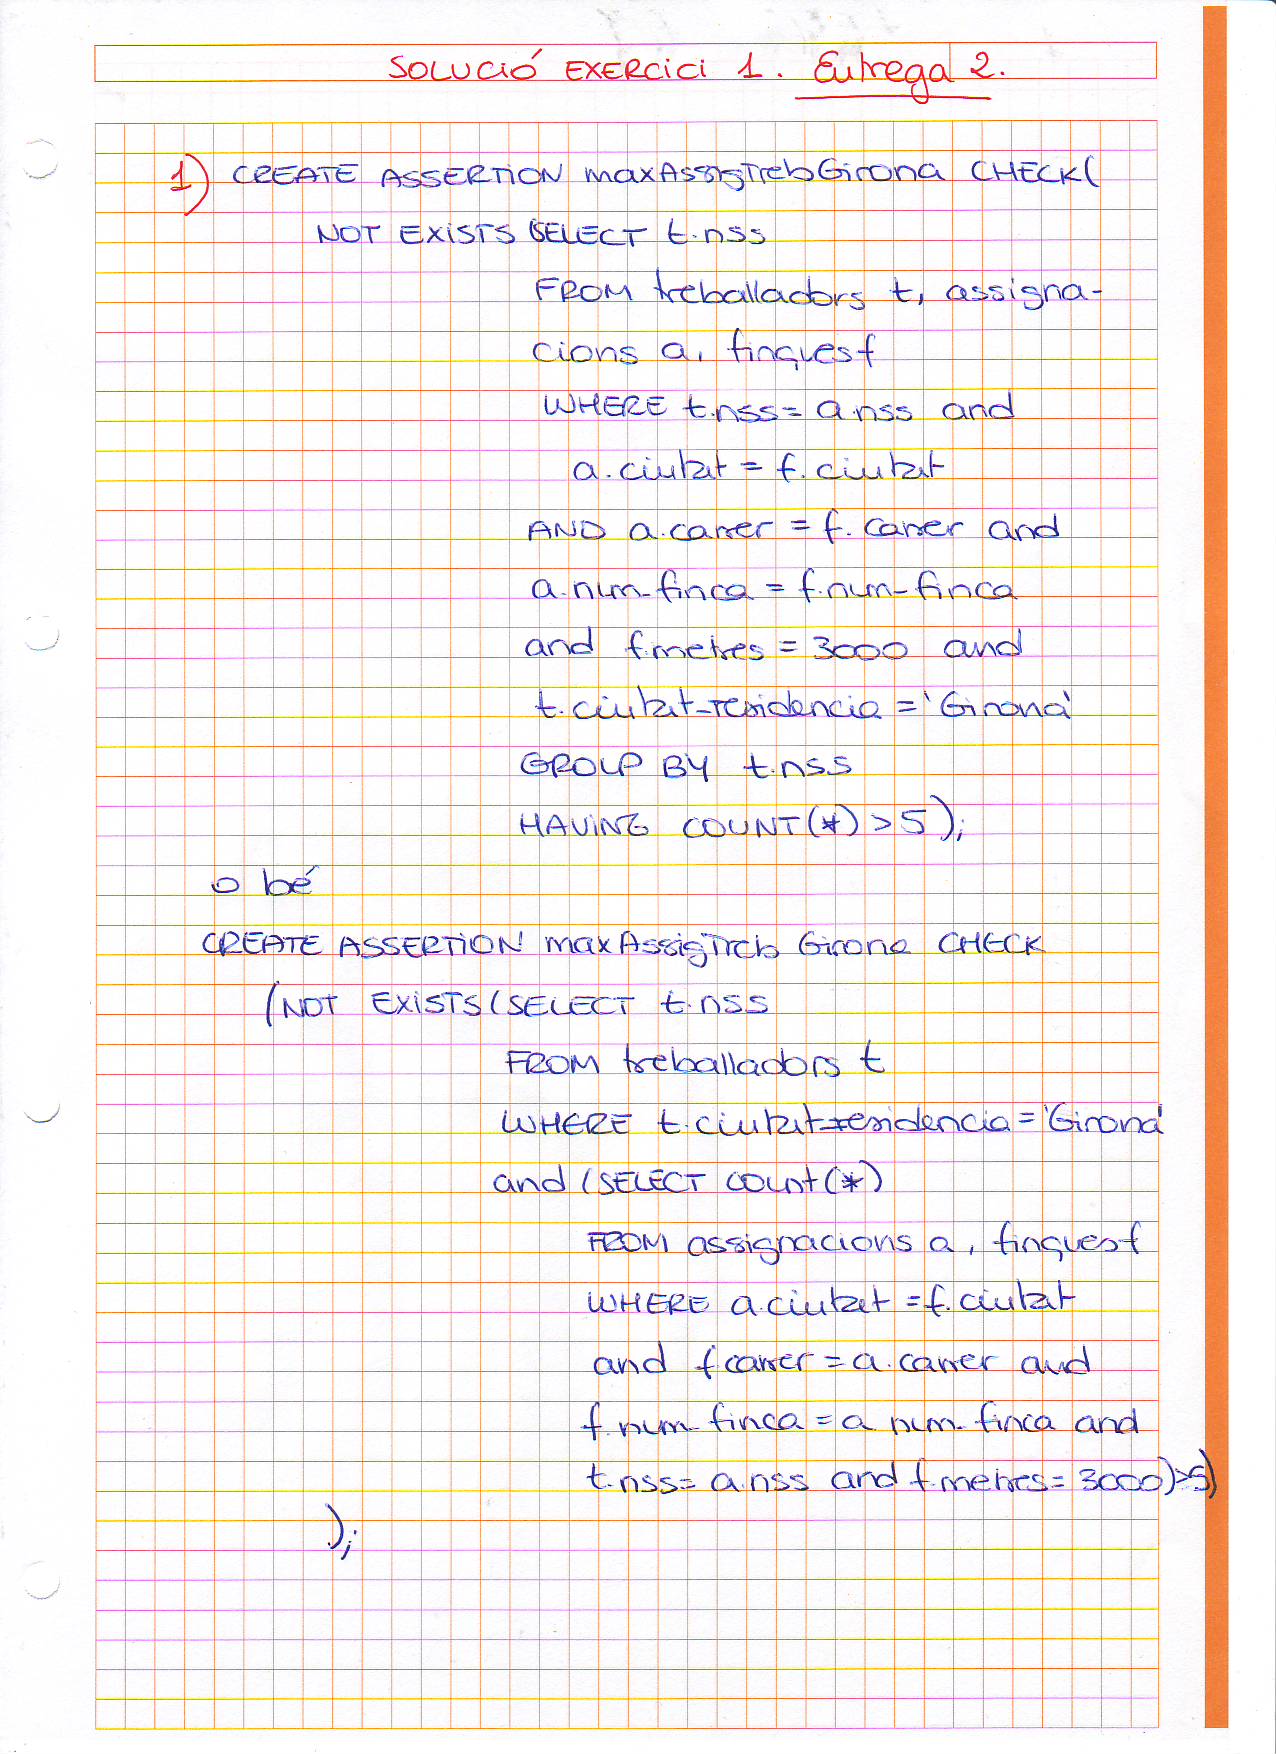 SOLUCIÓ EXERCICI 1. Entrega 2.
1) CREATE ASSERTION maxAssigTrebGirona CHECK(
NOT EXISTS (SELECT t.nss
FROM treballadors t, assigna-
cions a, finques f
WHERE t.nss = a.nss and
a.ciutat = f.ciutat
AND a.carrer = f.carrer and
a.num_finca = f.num_finca
and f.metres = 3000 and
t.ciutat_residencia = 'Girona'
GROUP BY t.nss
HAVING COUNT(*) > 5);
o bé
CREATE ASSERTION maxAssigTreb Girona CHECK
(NOT EXISTS (SELECT t.nss
FROM treballadors t
WHERE t.ciutat_residencia = 'Girona'
and (SELECT count(*)
FROM assignacions a, finques f
WHERE a.ciutat = f.ciutat
and f.carrer = a.carrer and
f.num_finca = a num_finca and
t.nss = a.nss and f.metres = 3000) > 5)
);